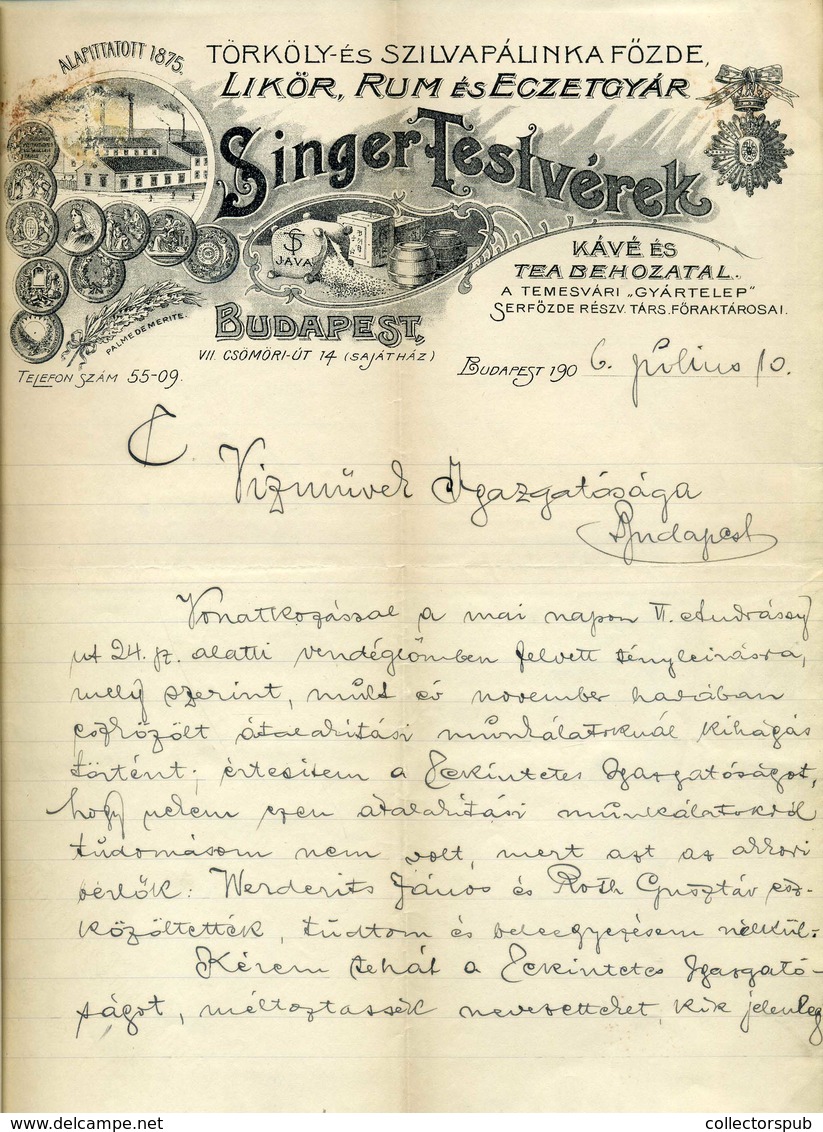 ALAPITTATOTT 1875.
TÖRKÖLY-ÉS SZILVAPÁLINKA FŐZDE,
LIKŐR, RUM ÉS ECZETGYÁR
Singer Testvérek
ST
JAVA
KÁVÉ ÉS
TEA BEHOZATAL.
A TEMESVÁRI „GYÁRTELEP"
SERFŐZDE RÉSZV. TÁRS. FŐRAKTÁROSAI.
PALME DE MERITE.
BUDAPEST,
VII. CSÖMÖRI-ÚT 14 (SAJÁTHÁZ)
TELEFON SZÁM 55-09.
BUDAPEST 1906. július 10.
T.
Vizművek Igazgatósága
Budapest
Vonatkozással a mai napon VI. Andrássy
ut 24. sz. alatti vendéglőmben felvett tényleirásra,
mely szerint, mult év november havában
eszközölt átalakitási munkálatoknál kihágás
történt; értesitem a Tekintetes Igazgatóságot,
hogy nekem ezen átalakitási munkálatokról
tudomásom nem volt, mert azt az akkori
bérlők: Werderits János és Roth Gusztáv esz-
közöltették, tudtom és beleegyezésem nélkül.
Kérem tehát a Tekintetes Igazgató-
ságot, méltoztassék nevezetteket, kik jelenleg
delcampe.net
collectorspub